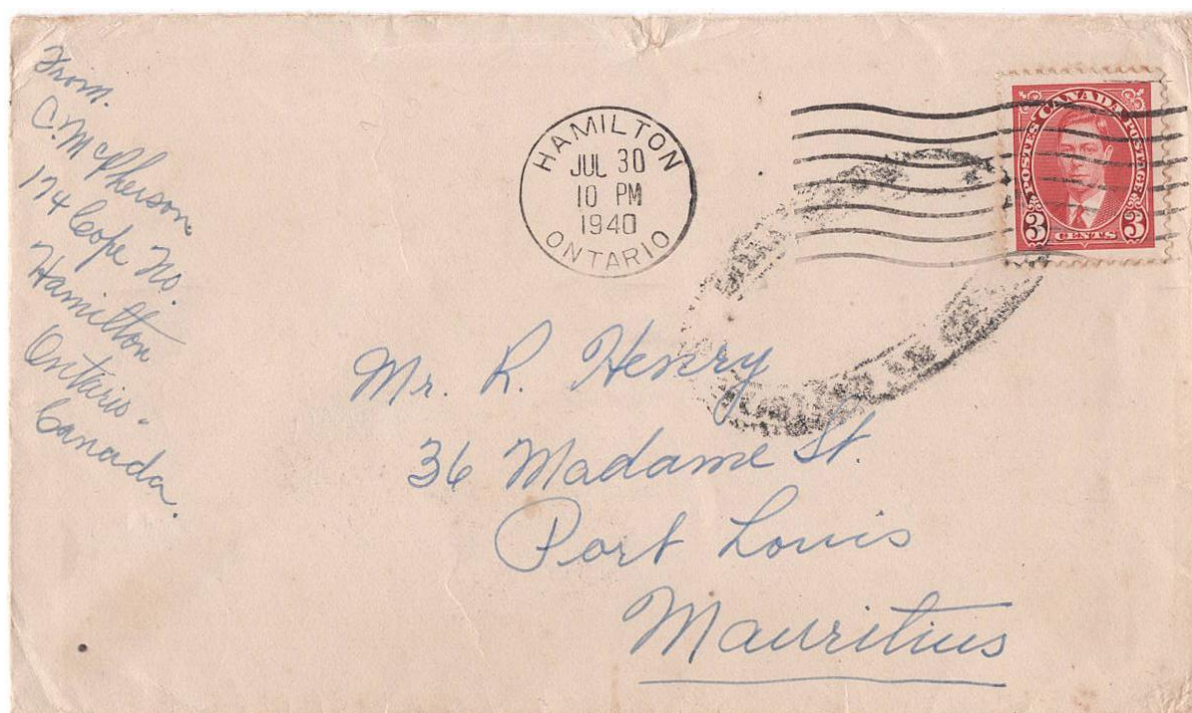 From.
C. McPherson.
174 Cope No.
Hamilton
Ontario.
Canada.
HAMILTON
JUL 30
10 PM
1940
ONTARIO
POSTES CANADA POSTAGE
3 CENTS 3
Mr. R. Henry
36 Madame St.
Port Louis
Mauritius